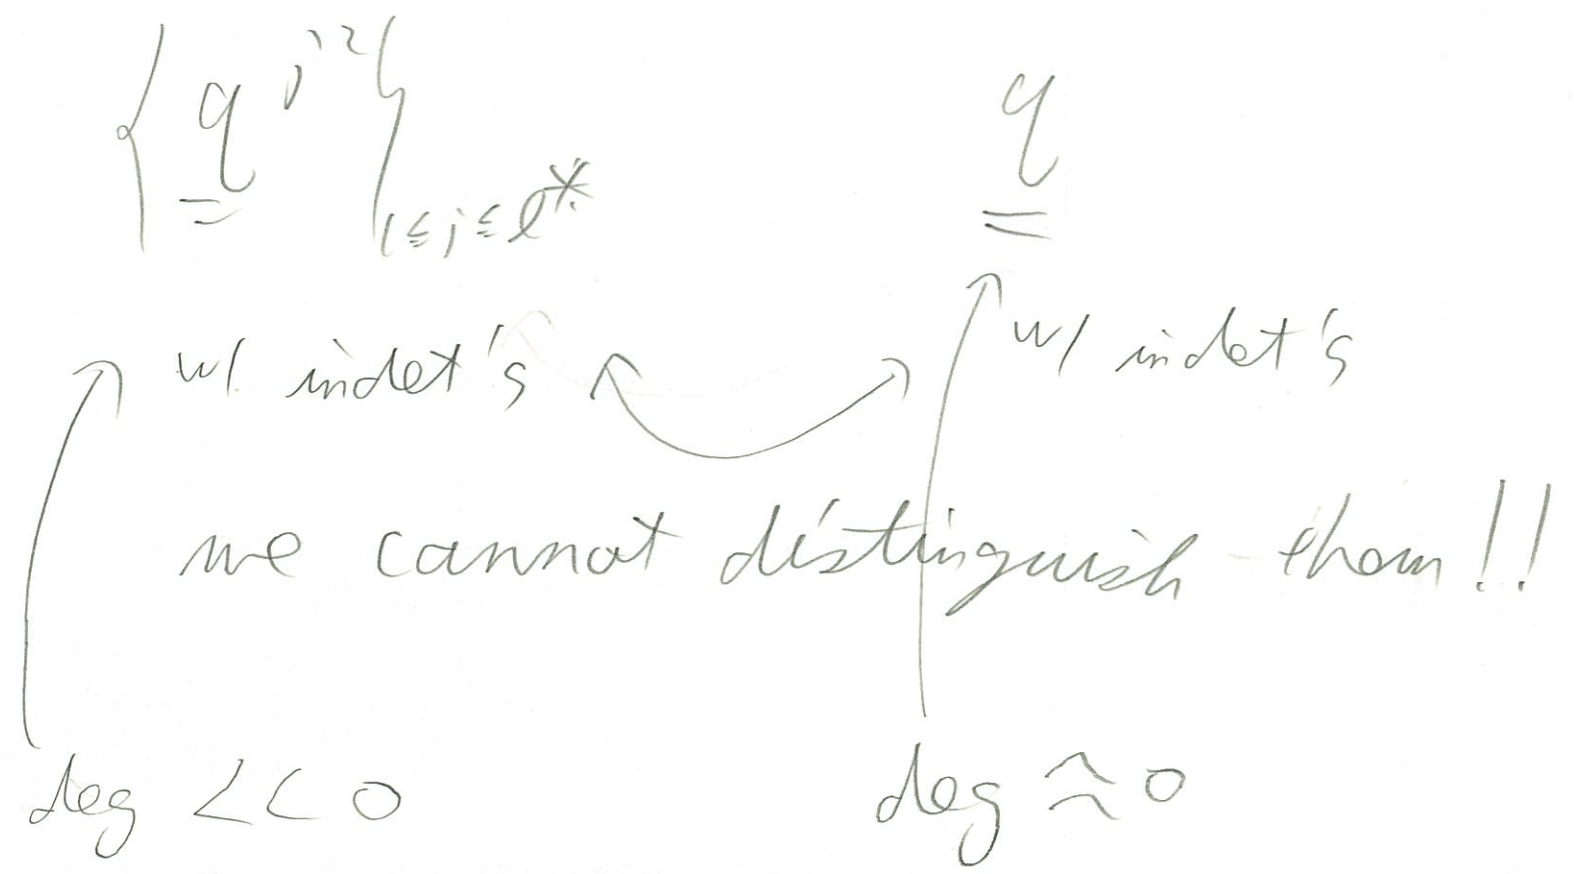 {q^{j^2}}_{1≤j≤l*} q
w/ indet's w/ indet's
we cannot distinguish them!!
deg << 0 deg ≈ 0